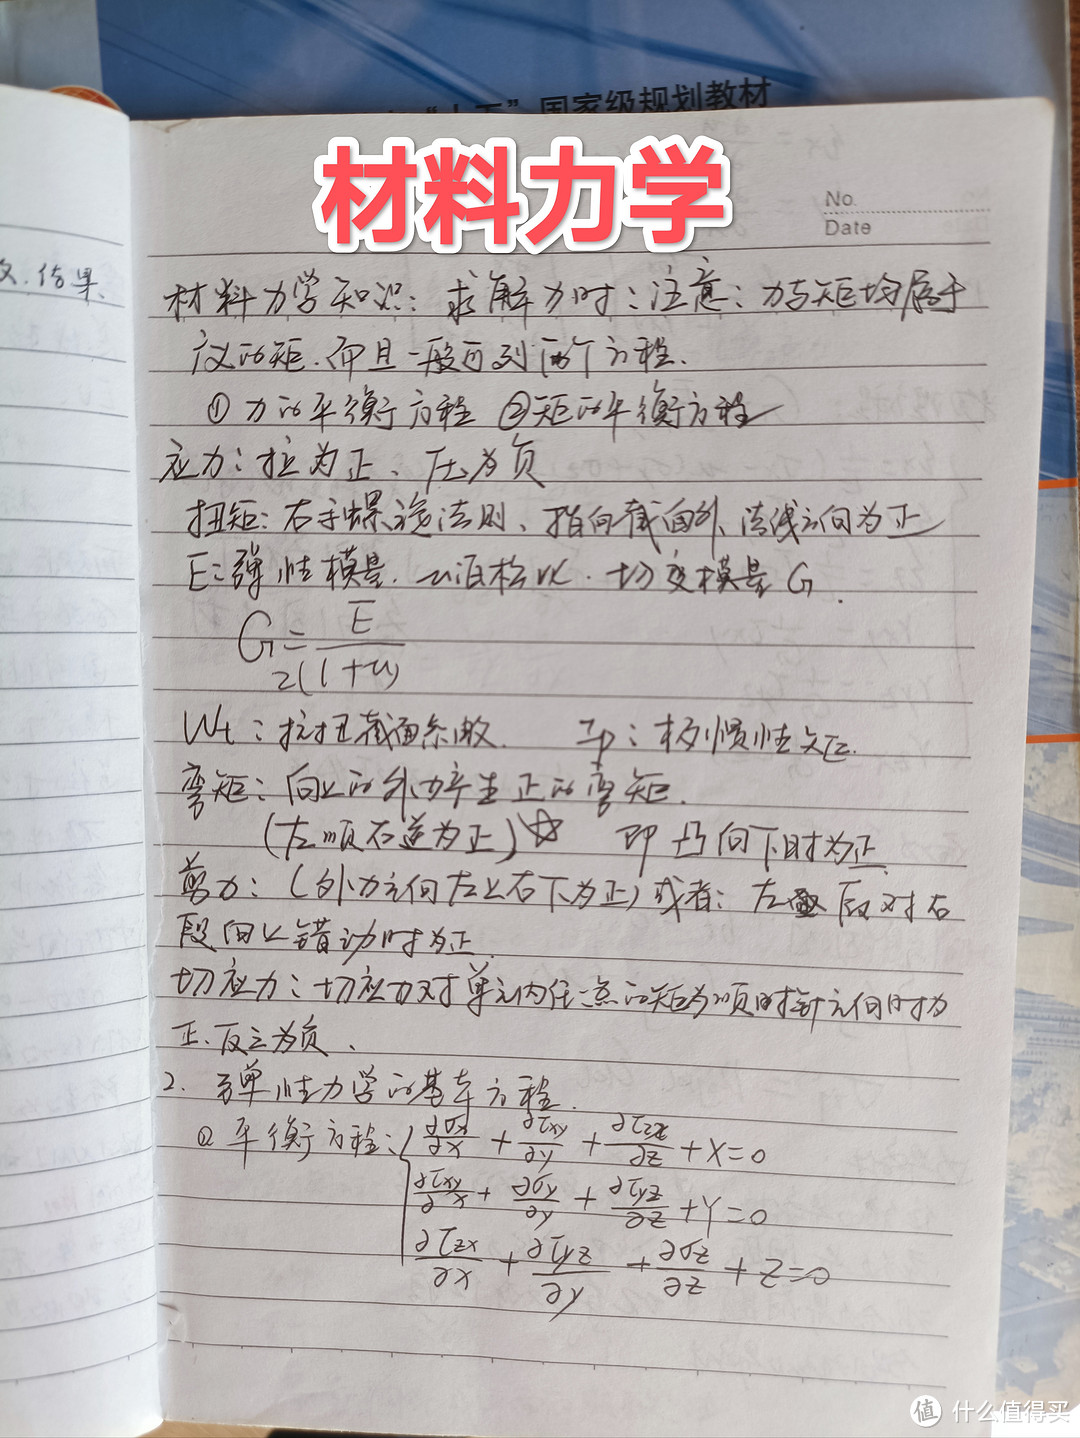 “十五”国家级规划教材
材料力学
No.
Date
结果.
材料力学知识：求解力时：注意：力与矩均属于
广义的矩.而且一般可列两个方程.
①力的平衡方程 ②矩的平衡方程
应力：拉为正、压为负
扭矩：右手螺旋法则、指向截面外法线方向为正
E：弹性模量. u泊松比. 切变模量G.
G=E/2(1+u)
Wt：抗扭截面系数. Ip：极惯性矩.
弯矩：向上的外力产生正的弯矩.
(左顺右逆为正)☆ 即凸向下时为正.
剪力：(外力方向左上右下为正)或者：左段对右
段向上错动时为正.
切应力：切应力对单元内任一点的矩为顺时针方向时为
正.反之为负.
2. 弹性力学的基本方程.
平衡方程：{∂σx/∂x + ∂τxy/∂y + ∂τzx/∂z + X=0
∂τxy/∂x + ∂σy/∂y + ∂τyz/∂z + Y=0
∂τzx/∂x + ∂τyz/∂y + ∂σz/∂z + Z=0
值 什么值得买